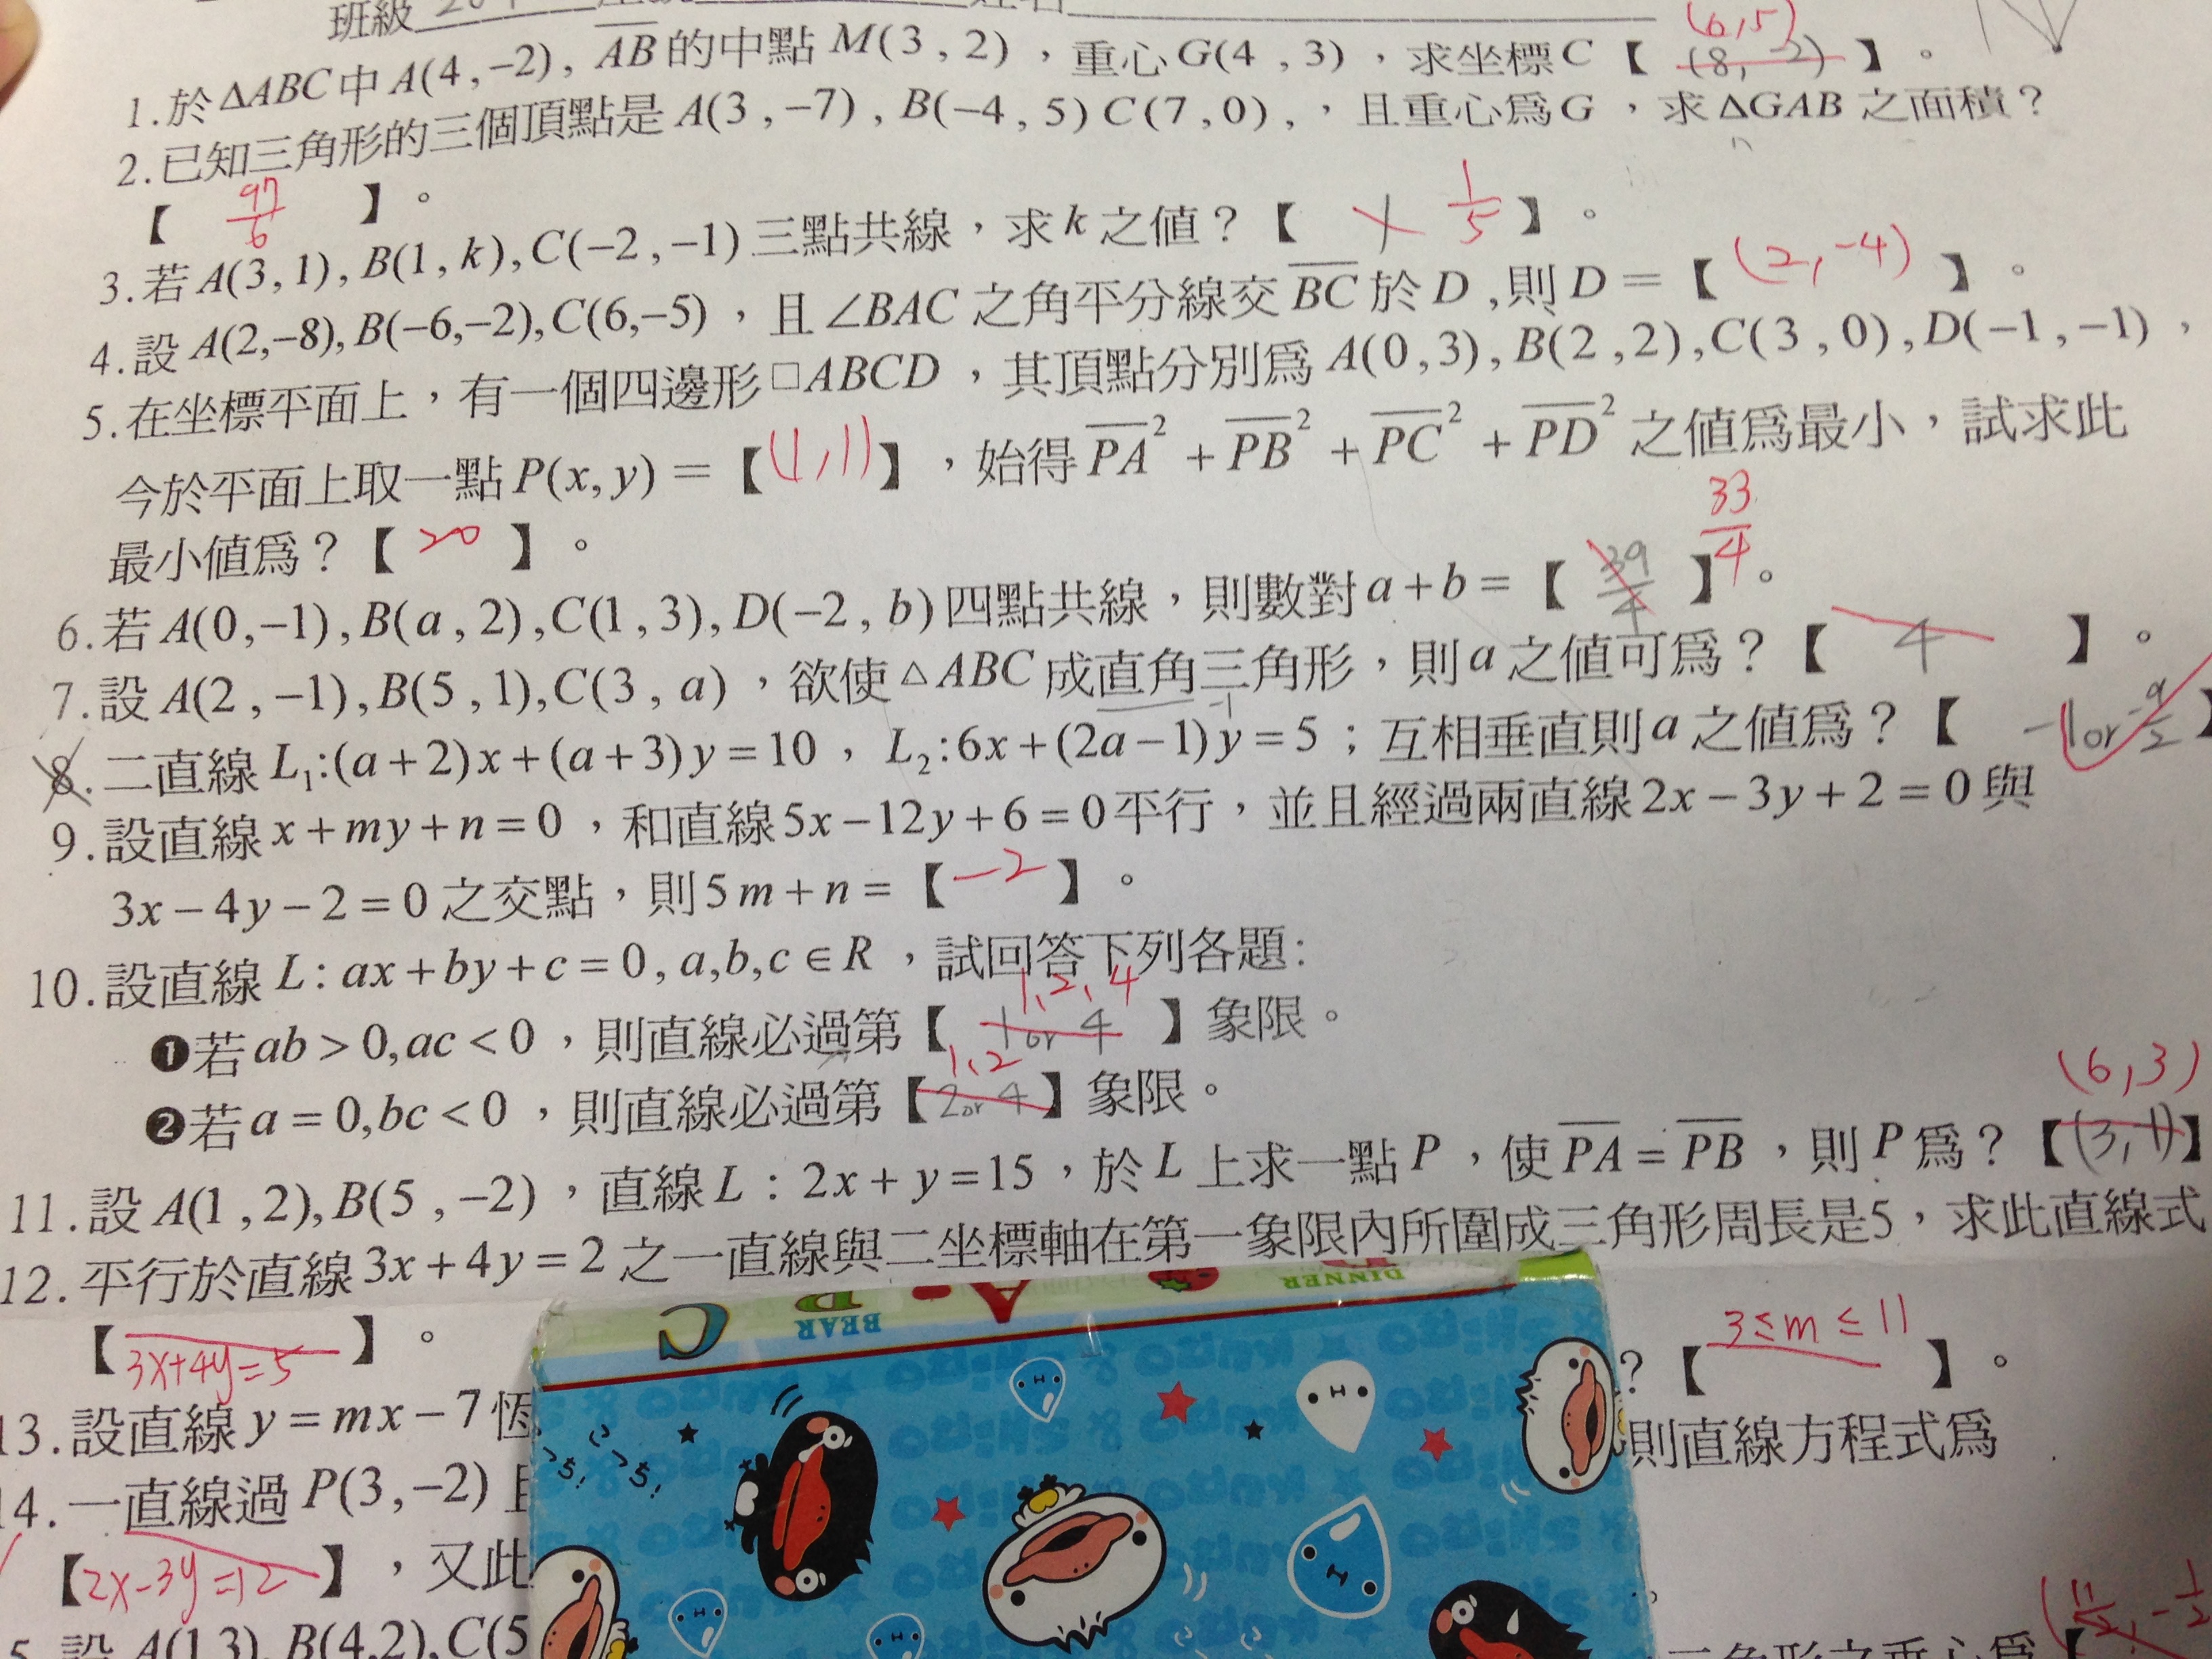 班級
(6,5)
1.於ΔABC中A(4,-2), AB的中點M(3,2),重心G(4,3),求坐標C【(8, 2)】。
2.已知三角形的三個頂點是A(3,-7),B(-4,5)C(7,0),,且重心爲G,求ΔGAB之面積?
【97/6】。
3.若A(3,1),B(1,k),C(-2,-1)三點共線,求k之值?【 1/5】。
4.設A(2,-8),B(-6,-2),C(6,-5),且∠BAC之角平分線交BC於D,則D=【(2,-4)】。
5.在坐標平面上,有一個四邊形□ABCD,其頂點分別爲A(0,3),B(2,2),C(3,0),D(-1,-1),
今於平面上取一點P(x,y)=【(1,1)】,始得PA²+PB²+PC²+PD²之值爲最小,試求此
最小值爲?【20】。
33/4
6.若A(0,-1),B(a,2),C(1,3),D(-2,b)四點共線,則數對a+b=【39/4】。
7.設A(2,-1),B(5,1),C(3,a),欲使△ABC成直角三角形,則a之值可爲?【4】。
8.二直線L₁:(a+2)x+(a+3)y=10,L₂:6x+(2a-1)y=5;互相垂直則a之值爲?【-1or-9/2】
9.設直線x+my+n=0,和直線5x-12y+6=0平行,並且經過兩直線2x-3y+2=0與
3x-4y-2=0之交點,則5m+n=【-2】。
10.設直線L:ax+by+c=0,a,b,c∈R,試回答下列各題:
1、2、4
❶若ab>0,ac<0,則直線必過第【1or 4】象限。
1、2
❷若a=0,bc<0,則直線必過第【2or 4】象限。
(6,3)
11.設A(1,2),B(5,-2),直線L:2x+y=15,於L上求一點P,使PA=PB,則P爲?【(3,1)】
12.平行於直線3x+4y=2之一直線與二坐標軸在第一象限內所圍成三角形周長是5,求此直線式
【3x+4y=5】。
13.設直線y=mx-7恆 ?【3≤m≤11】。
14.一直線過P(3,-2)且 則直線方程式爲
【2x-3y=12】,又此
5.設A(1,3),B(4,2),C(5 三角形之重心爲【(11/2,-1/2
DINNER
BEAR
A
B
C